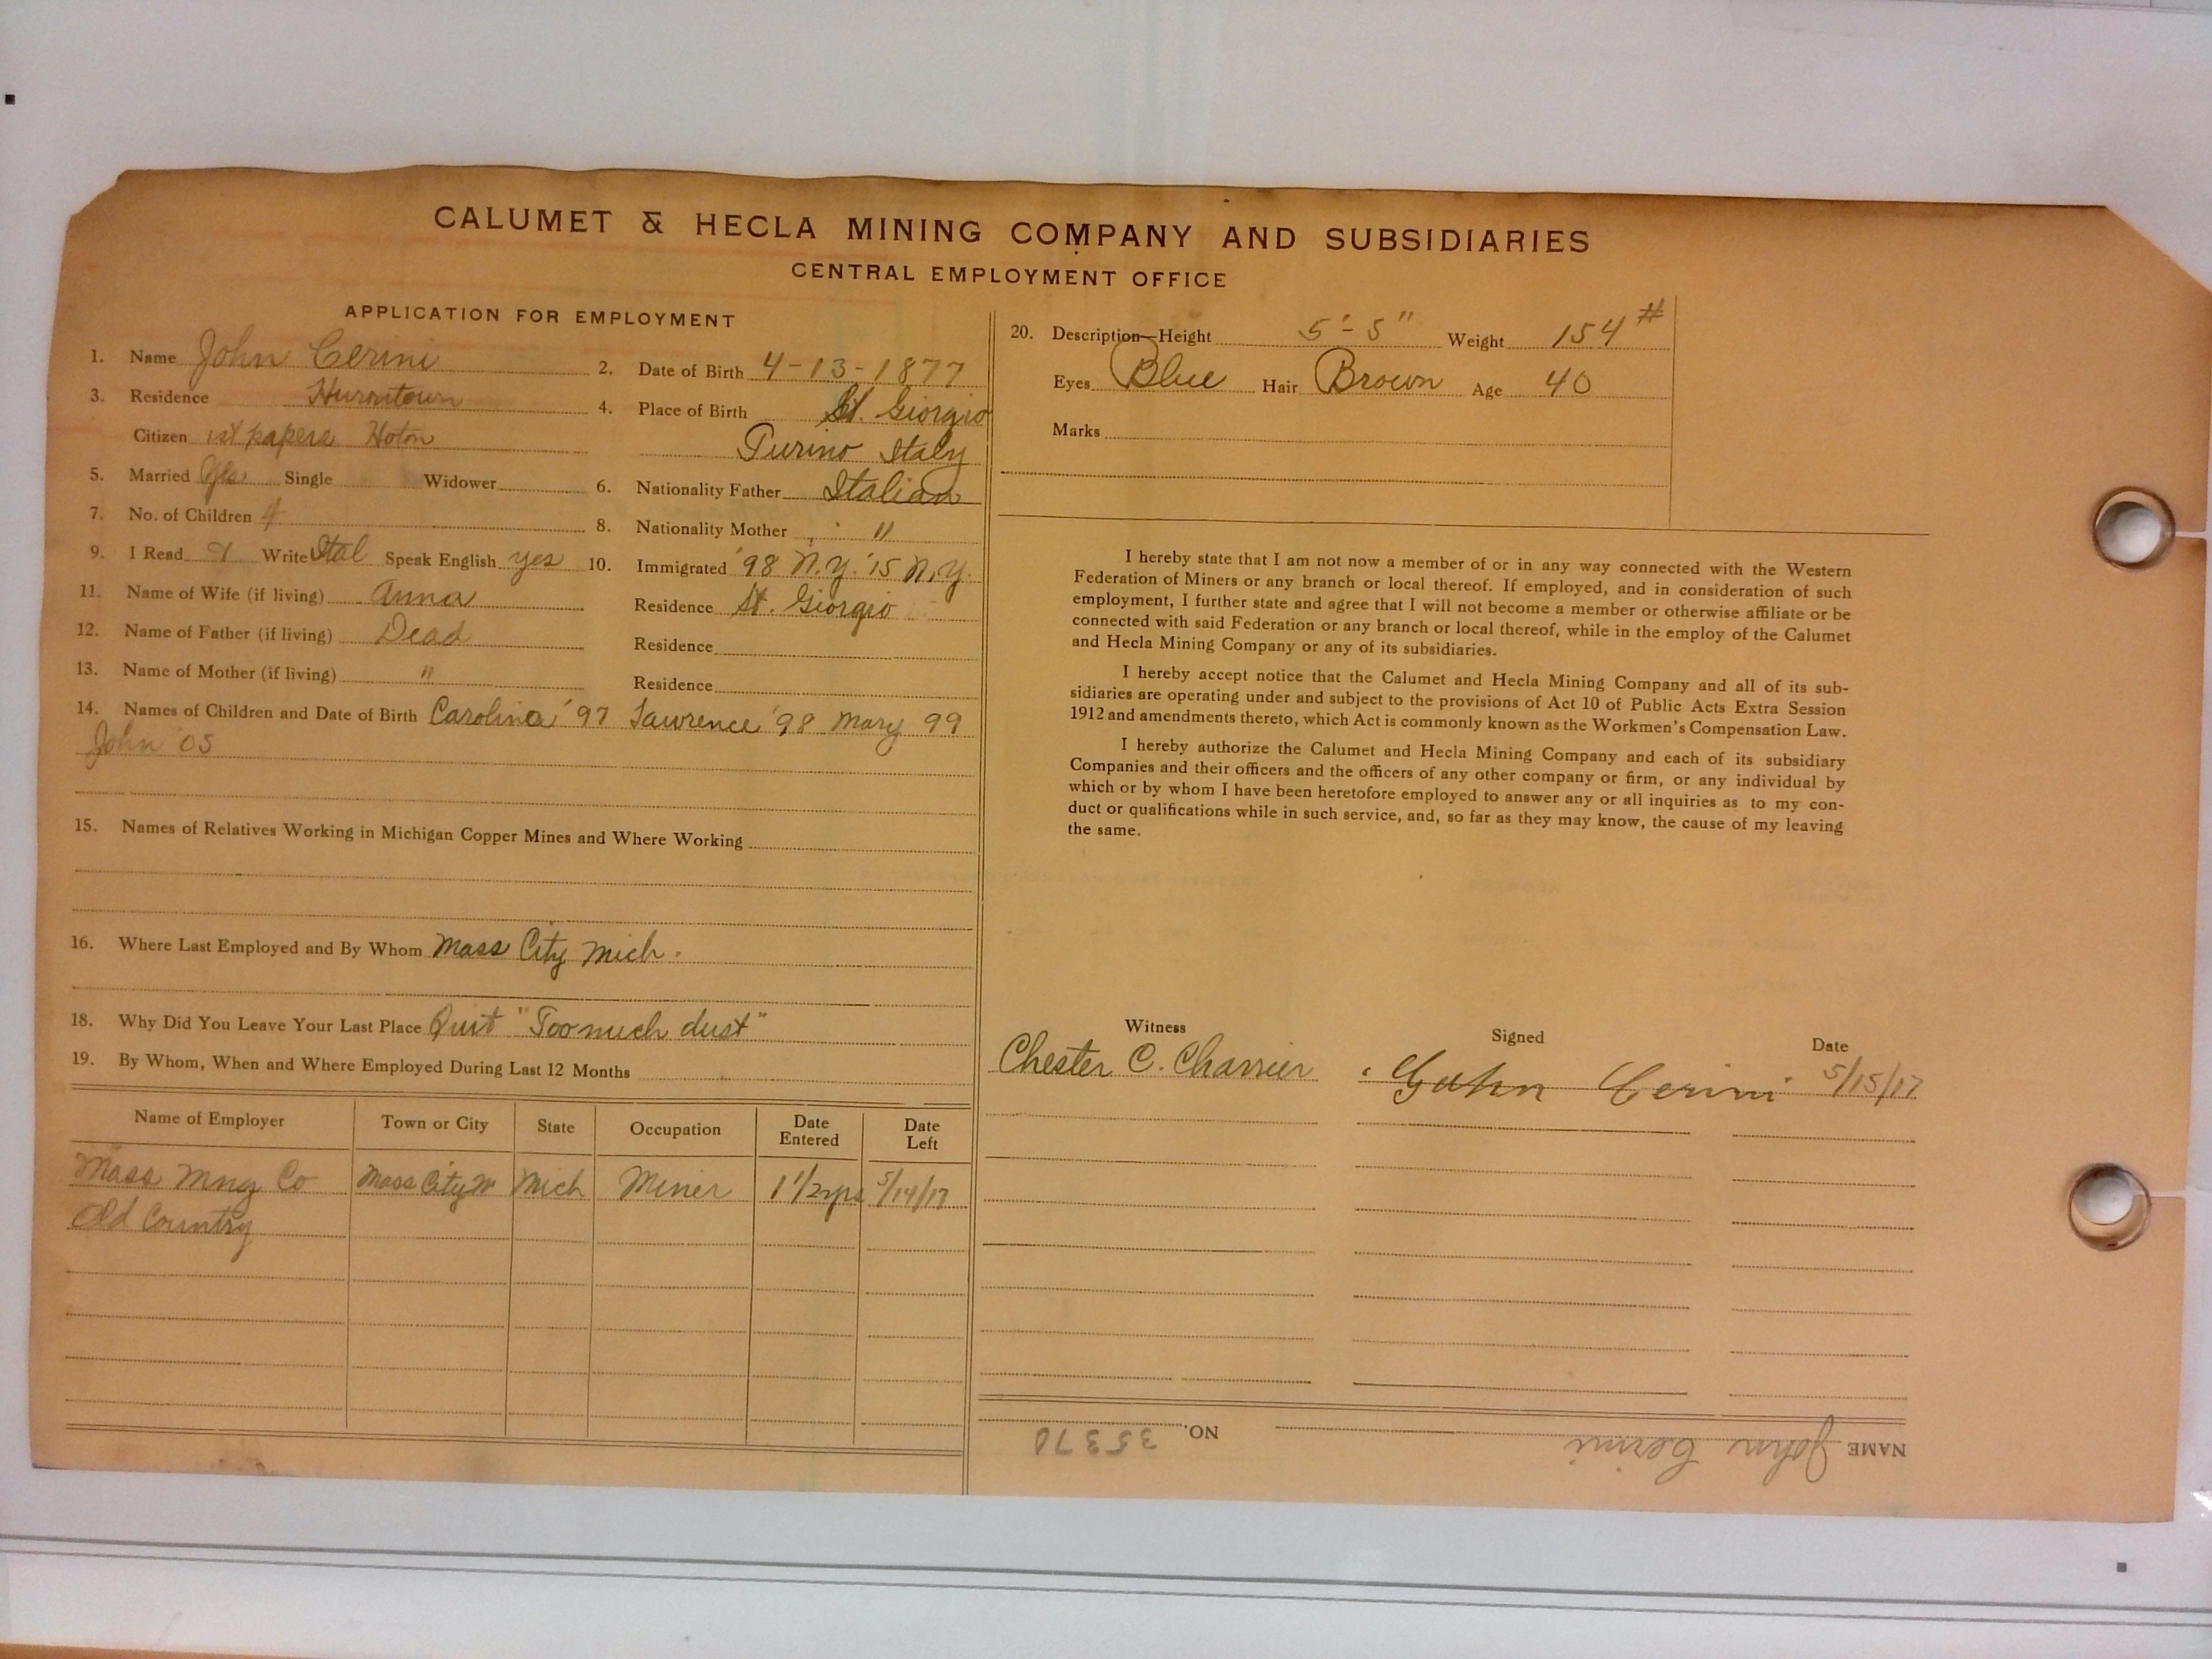 CALUMET & HECLA MINING COMPANY AND SUBSIDIARIES
CENTRAL EMPLOYMENT OFFICE
APPLICATION FOR EMPLOYMENT
1. Name John Cerini 2. Date of Birth 4-13-1877
3. Residence Hurontown 4. Place of Birth St. Giorgio
Citizen 1st papers Hoton Turino Italy
5. Married Yes Single Widower 6. Nationality Father Italian
7. No. of Children 4 8. Nationality Mother "
9. I Read & Write Ital Speak English yes 10. Immigrated '98 N.Y. '15 N.Y.
11. Name of Wife (if living) Anna Residence St. Giorgio
12. Name of Father (if living) Dead Residence
13. Name of Mother (if living) " Residence
14. Names of Children and Date of Birth Carolina '97 Lawrence '98 Mary 99
John '05
15. Names of Relatives Working in Michigan Copper Mines and Where Working
16. Where Last Employed and By Whom Mass City Mich.
18. Why Did You Leave Your Last Place Quit "Too much dust"
19. By Whom, When and Where Employed During Last 12 Months
Name of Employer Town or City State Occupation Date Entered Date Left
Mass Mng Co Mass City Mich Miner 1 1/2 yrs 5/14/17
Old Country
20. Description—Height 5'-5" Weight 154#
Eyes Blue Hair Brown Age 40
Marks
I hereby state that I am not now a member of or in any way connected with the Western
Federation of Miners or any branch or local thereof. If employed, and in consideration of such
employment, I further state and agree that I will not become a member or otherwise affiliate or be
connected with said Federation or any branch or local thereof, while in the employ of the Calumet
and Hecla Mining Company or any of its subsidiaries.
I hereby accept notice that the Calumet and Hecla Mining Company and all of its sub-
sidiaries are operating under and subject to the provisions of Act 10 of Public Acts Extra Session
1912 and amendments thereto, which Act is commonly known as the Workmen's Compensation Law.
I hereby authorize the Calumet and Hecla Mining Company and each of its subsidiary
Companies and their officers and the officers of any other company or firm, or any individual by
which or by whom I have been heretofore employed to answer any or all inquiries as to my con-
duct or qualifications while in such service, and, so far as they may know, the cause of my leaving
the same.
Witness Signed Date
Chester C. Charrier Guhn Cerini 5/15/17
NAME John Cerini NO. 35370